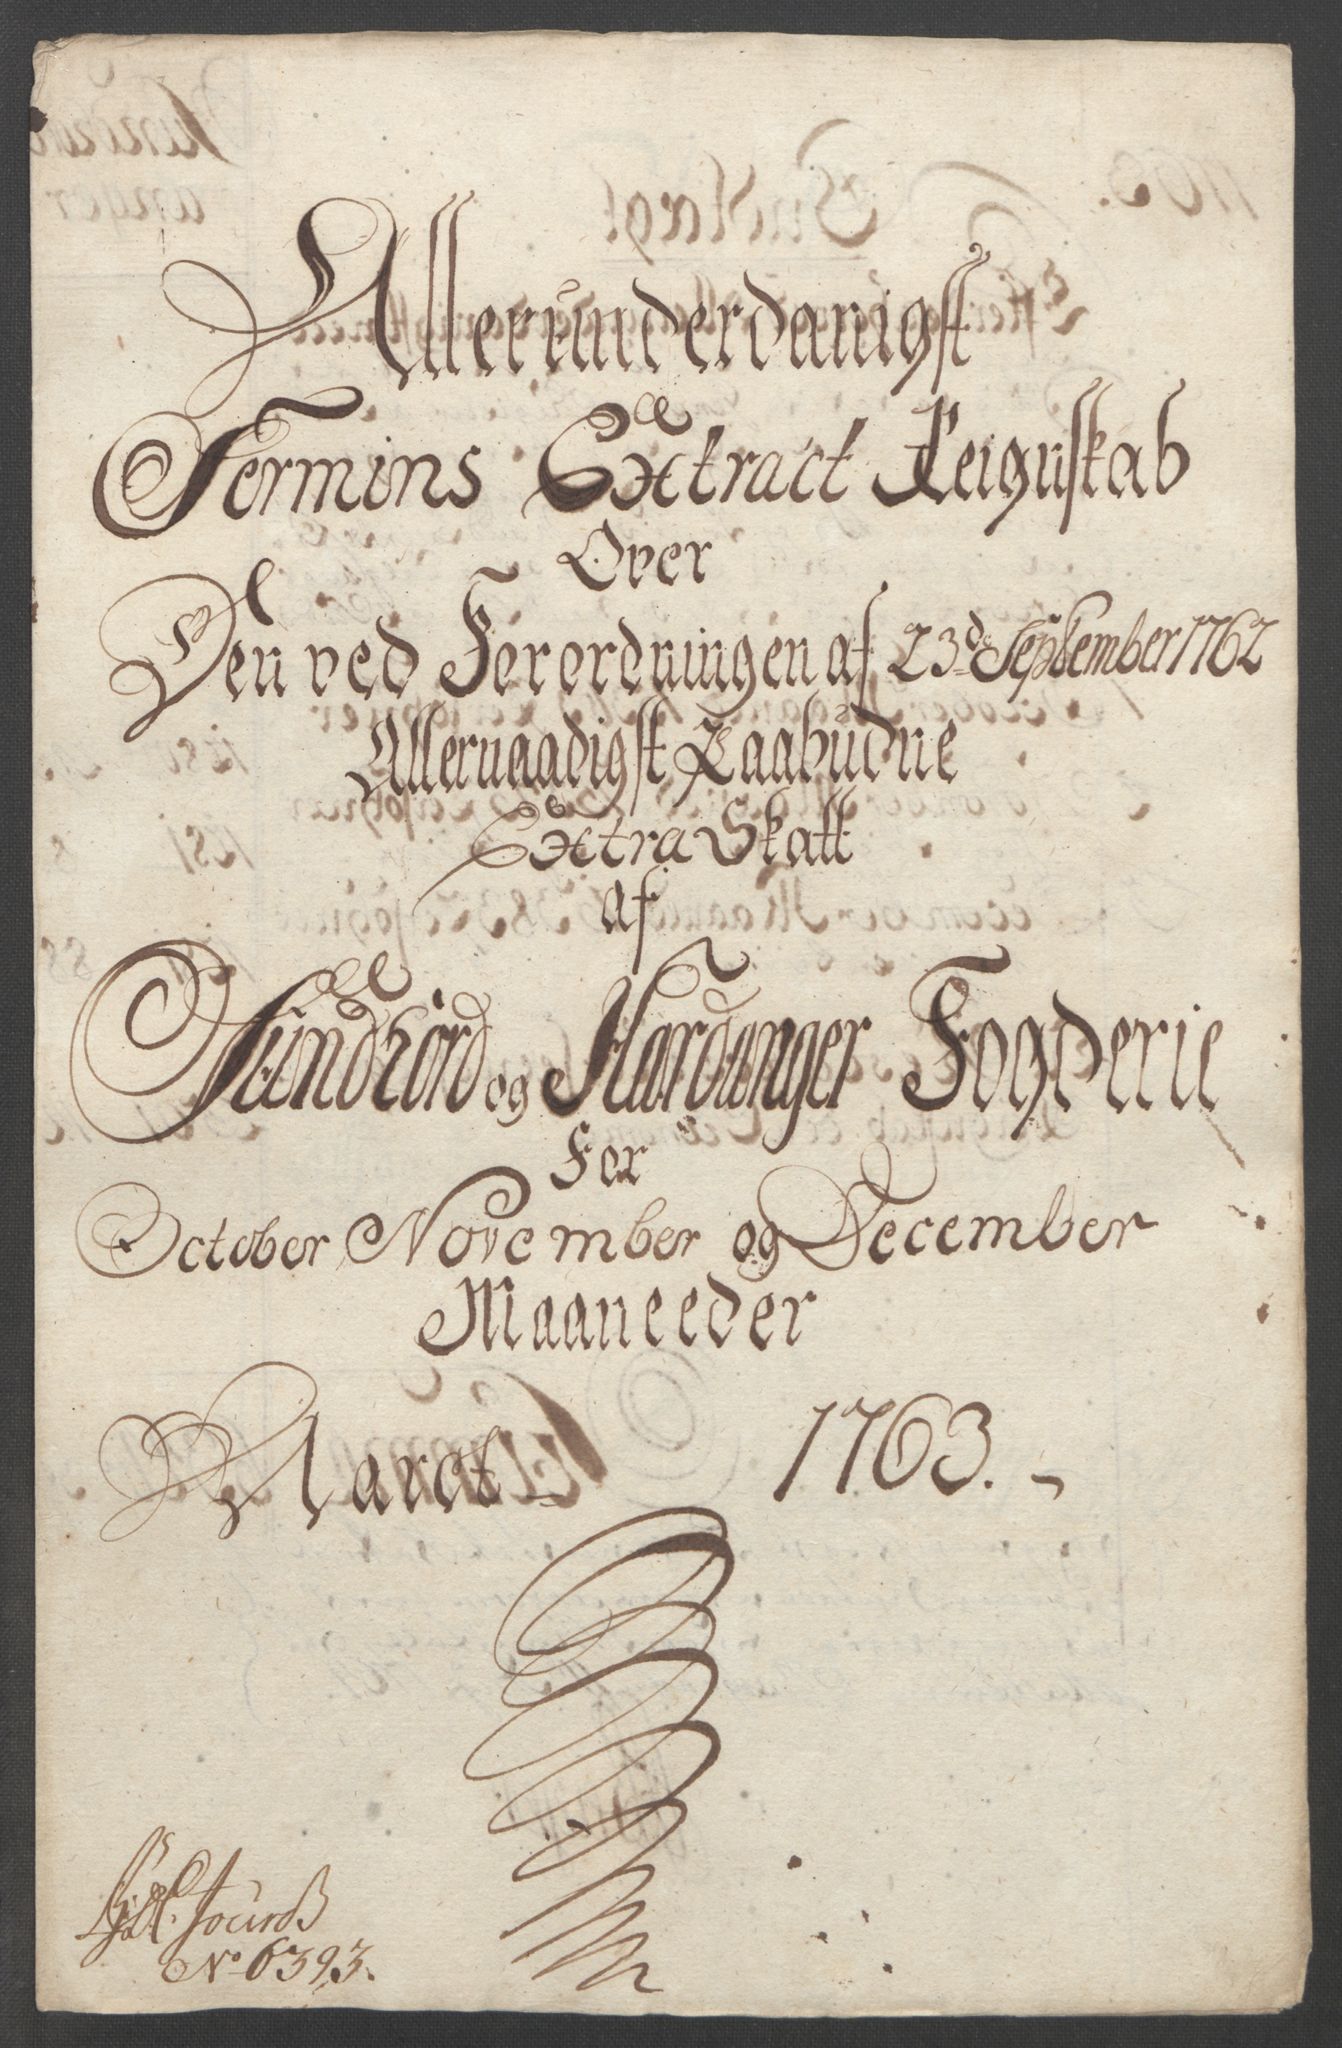 Allerunderdanigst
Termins Extract Reignskab
Over
Den ved Forordningen af 23d September 1762
Allernaadigst Paabudne
Extra Skatt
af
Sundhord og Hardanger Fogderie
For
October November og December
Maaneeder
Aaret - 1763. -
No 6393.